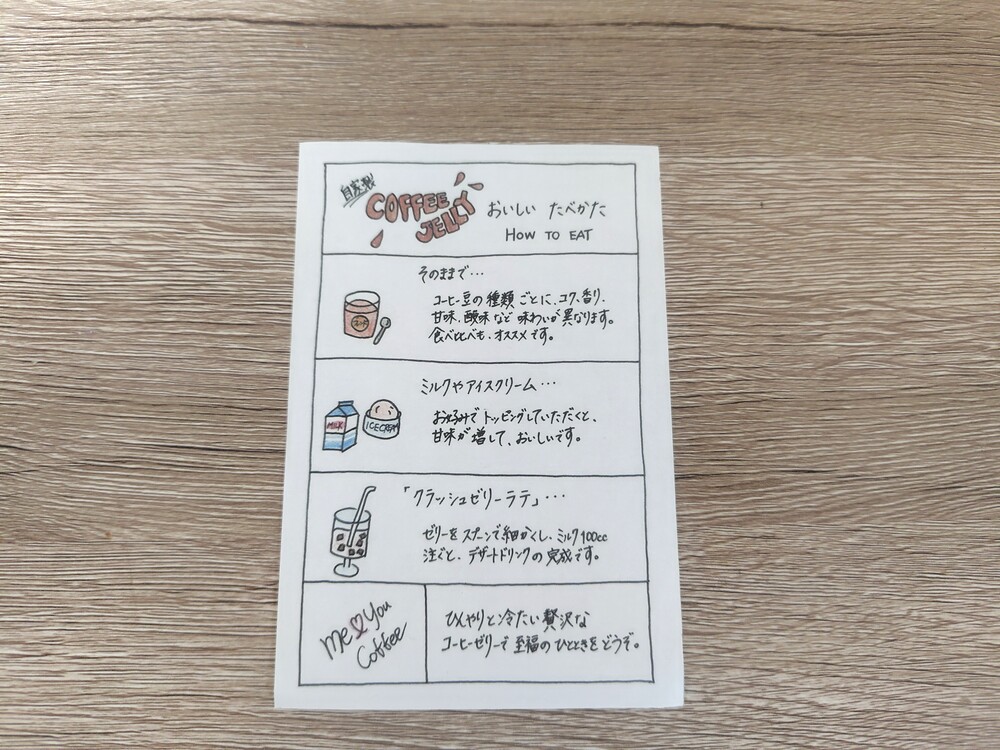 自家製
COFFEE
JELLY
おいしい たべかた
HOW TO EAT
そのままで…
コーヒー豆の種類ごとに、コク、香り、
甘味、酸味など味わいが異なります。
食べ比べも、オススメです。
ミルクやアイスクリーム…
MILK
ICECREAM
お好みでトッピングしていただくと、
甘味が増して、おいしいです。
「クラッシュゼリーラテ」…
ゼリーをスプーンで細かくし、ミルク100cc
注ぐと、デザートドリンクの完成です。
Me You
Coffee
ひんやりと冷たい贅沢な
コーヒーゼリーで至福のひとときをどうぞ。